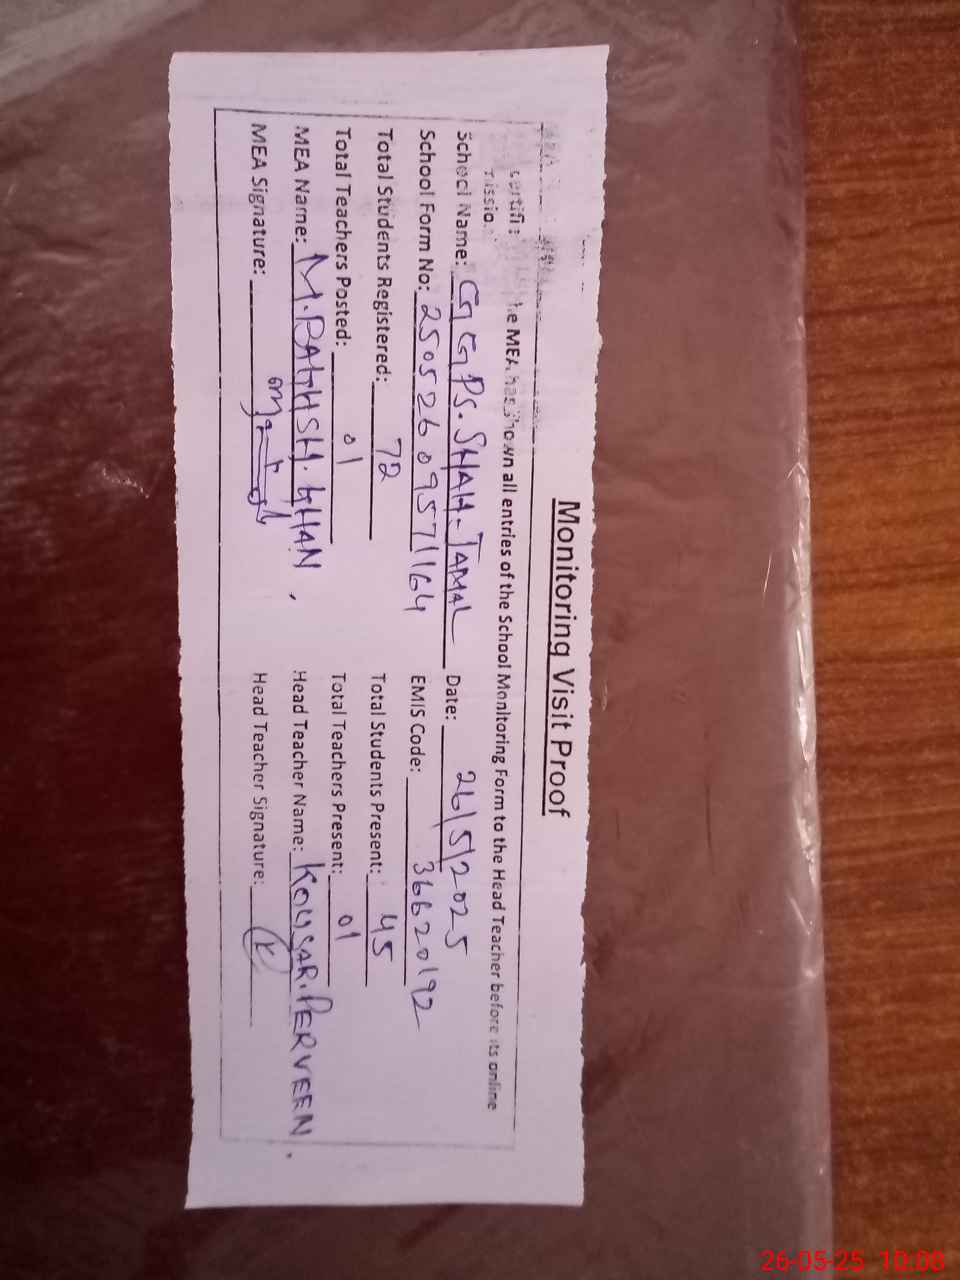 Monitoring Visit Proof
he MEA has shown all entries of the School Monitoring Form to the Head Teacher before its online
School Name: GGPS. SHAH-JAMAL Date: 26/5/2025
School Form No: 25052609571164 EMIS Code: 36620192
Total Students Registered: 72 Total Students Present: 45
Total Teachers Posted: 01 Total Teachers Present: 01
MEA Name: M.BAKHSH.KHAN, Head Teacher Name: KOUSAR.PERVEEN.
MEA Signature: Head Teacher Signature: K
26-05-25 10:08